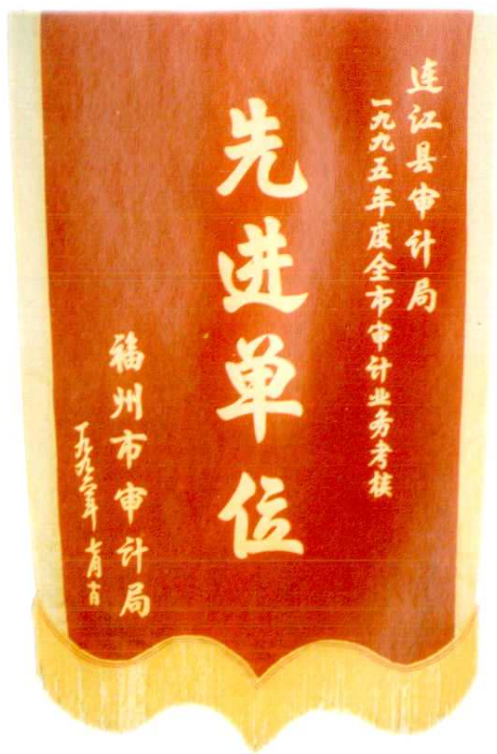 连江县审计局
一九九五年度全市审计业务考核
先进单位
福州市审计局
一九九六年